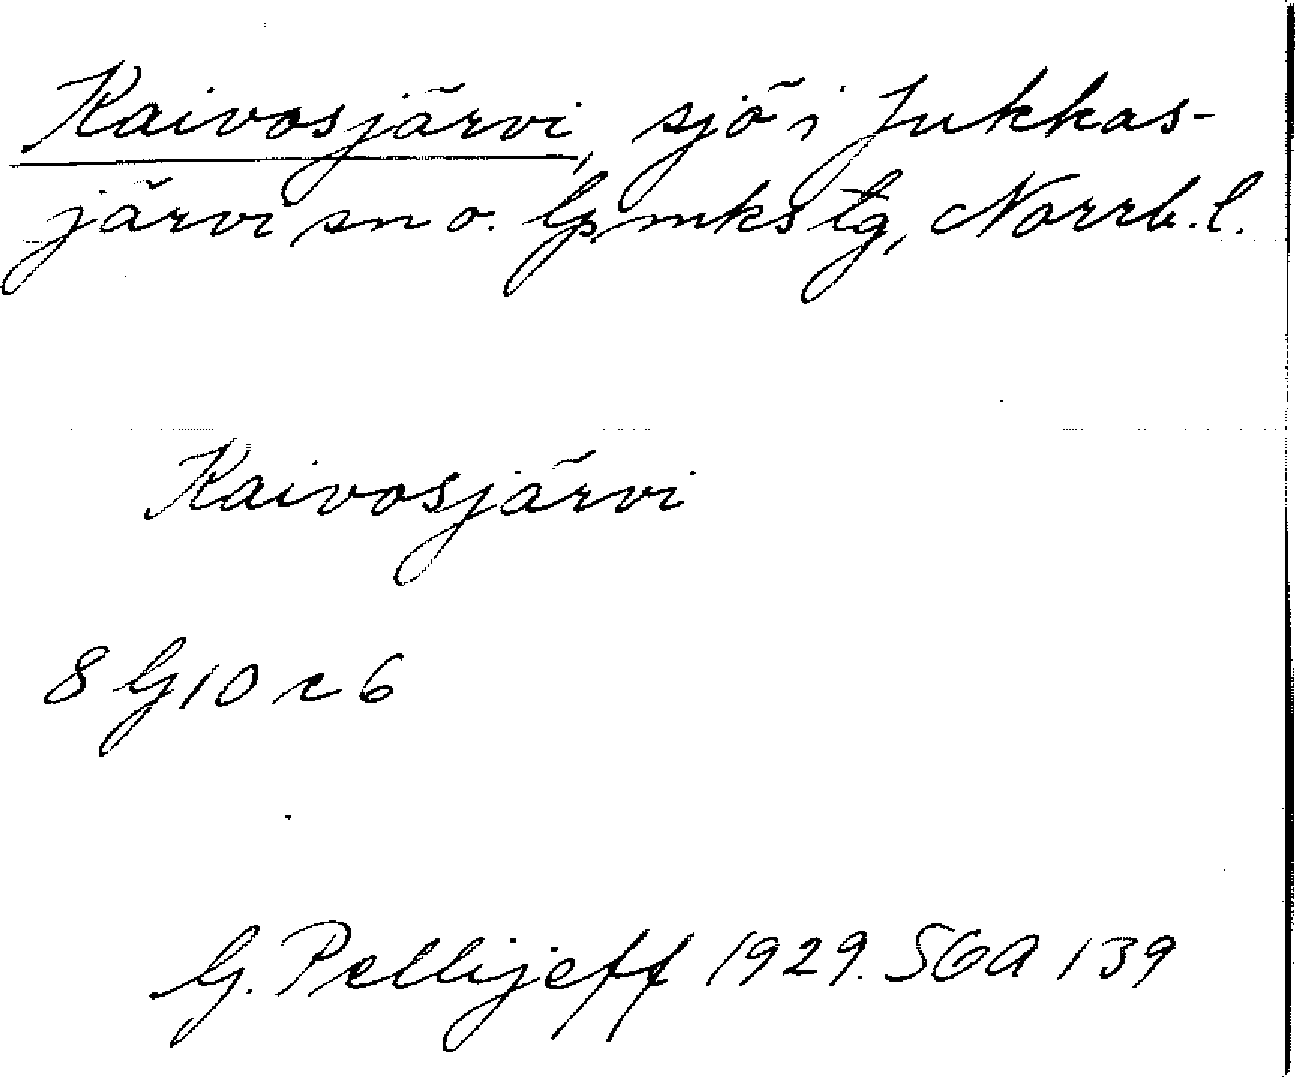 Kaivosjärvi, sjö i Jukkas-
järvi sn o. tg, Norrb. l.
Kaivosjärvi
8 G 10 c 6
G. Pellijeff 1929. SGA 139